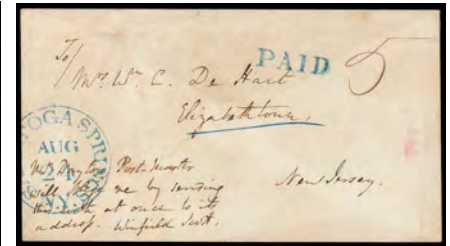 To/
PAID 5
Mrs Wm. C. De Hart
Elizabethtown,
New Jersey.
TOGA SPRINGS
AUG
24
N.Y.
Mr Drayton Post Master
will oblige me by sending
this with at once to its
address. Winfield Scott.